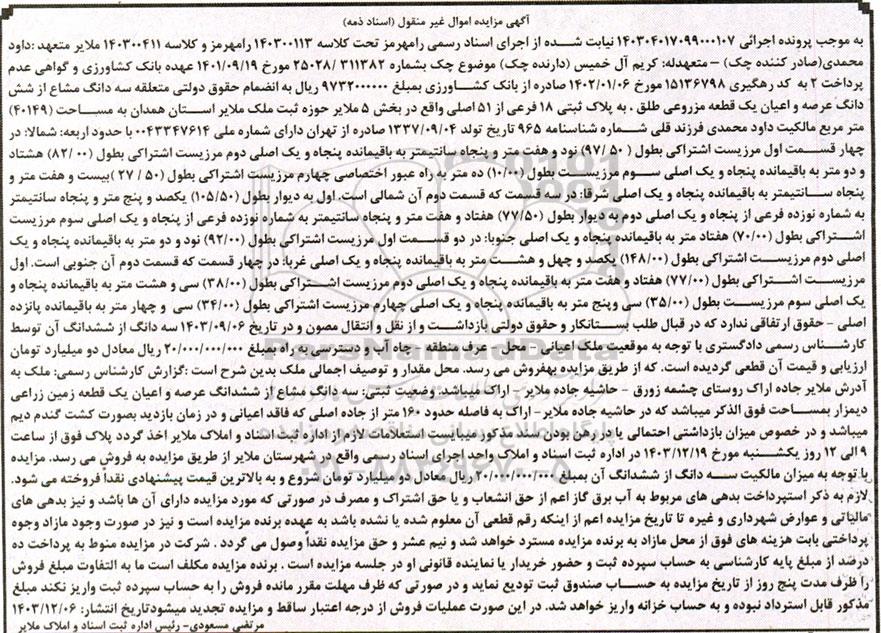 آگهی مزایده اموال غیر منقول (اسناد ذمه)
به موجب پرونده اجرائی ۱۴۰۳۰۴۰۱۷۰۹۹۰۰۰۱۰۷ نیابت شده از اجرای اسناد رسمی رامهرمز تحت کلاسه ۱۴۰۳۰۰۱۱۳ رامهرمز و کلاسه ۱۴۰۳۰۰۴۱۱ ملایر متعهد :داود
محمدی(صادر کننده چک) –متعهدله: کریم آل خمیس (دارنده چک) موضوع چک بشماره ۳۱۱۳۸۲ /۲۵۰۲۸ مورخ ۱۴۰۱/۰۹/۱۹ عهده بانک کشاورزی و گواهی عدم
پرداخت ۲ به کد رهگیری ۱۵۱۳۶۷۹۸ مورخ ۱۴۰۲/۰۱/۰۶ صادره از بانک کشاورزی بمبلغ ۹۷۳۲۰۰۰۰۰۰ ریال به انضمام حقوق دولتی متعلقه سه دانگ مشاع از شش
دانگ عرصه و اعیان یک قطعه مزروعی طلق ، به پلاک ثبتی ۱۸ فرعی از ۵۱ اصلی واقع در بخش ۵ ملایر حوزه ثبت ملک ملایر استان همدان به مساحت (۴۰۱۴۹)
متر مربع مالکیت داود محمدی فرزند قلی شماره شناسنامه ۹۶۵ تاریخ تولد ۱۳۳۷/۰۹/۰۴ صادره از تهران دارای شماره ملی ۰۰۴۳۳۴۷۶۱۴ با حدود اربعه: شمالا: در
چهار قسمت اول مرزیست اشتراکی بطول ( ۵۰ /۹۷) نود و هفت متر و پنجاه سانتیمتر به باقیمانده پنجاه و یک اصلی دوم مرزیست اشتراکی بطول (۰۰ /۸۲) هشتاد
و دو متر به باقیمانده پنجاه و یک اصلی سوم مرزیست بطول (۱۰/۰۰) ده متر به راه عبور اختصاصی چهارم مرزیست اشتراکی بطول (۵۰ / ۲۷ )بیست و هفت متر و
پنجاه سانتیمتر به باقیمانده پنجاه و یک اصلی شرقا: در سه قسمت که قسمت دوم آن شمالی است. اول به دیوار بطول (۱۰۵/۵۰) یکصد و پنج متر و پنجاه سانتیمتر
به شماره نوزده فرعی از پنجاه و یک اصلی دوم به دیوار بطول (۷۷/۵۰) هفتاد و هفت متر و پنجاه سانتیمتر به شماره نوزده فرعی از پنجاه و یک اصلی سوم مرزیست
اشتراکی بطول (۷۰/۰۰) هفتاد متر به باقیمانده پنجاه و یک اصلی جنوبا: در دو قسمت اول مرزیست اشتراکی بطول (۹۲/۰۰) نود و دو متر به باقیمانده پنجاه و یک
اصلی دوم مرزیست اشتراکی بطول (۱۴۸/۰۰) یکصد و چهل و هشت متر به باقیمانده پنجاه و یک اصلی غربا: در چهار قسمت که قسمت دوم آن جنوبی است. اول
مرزیست اشتراکی بطول (۷۷/۰۰) هفتاد و هفت متر به باقیمانده پنجاه و یک اصلی دوم مرزیست اشتراکی بطول (۳۸/۰۰) سی و هشت متر به باقیمانده پنجاه و
یک اصلی سوم مرزیست بطول (۳۵/۰۰) سی وپنج متر به باقیمانده پنجاه و یک اصلی چهارم مرزیست اشتراکی بطول (۳۴/۰۰) سی و چهار متر به باقیمانده پانزده
اصلی - حقوق ارتفاقی ندارد که در قبال طلب بستانکار و حقوق دولتی بازداشت و از نقل و انتقال مصون و در تاریخ ۱۴۰۳/۰۹/۰۶ سه دانگ از ششدانگ آن توسط
کارشناس رسمی دادگستری با توجه به موقعیت ملک اعیانی - محل - عرف منطقه - چاه آب و دسترسی به راه بمبلغ ۲۰/۰۰۰/۰۰۰/۰۰۰ ریال معادل دو میلیارد تومان
ارزیابی و قیمت آن قطعی گردیده است. که از طریق مزایده بهفروش می رسد. محل مقدار و توصیف اجمالی ملک بدین شرح است :گزارش کارشناس رسمی: ملک به
آدرش ملایر جاده اراک روستای چشمه زورق - حاشیه جاده ملایر - اراک میباشد. وضعیت ثبتی: سه دانگ مشاع از ششدانگ عرصه و اعیان یک قطعه زمین زراعی
دیمزار بمساحت فوق الذکر میباشد که در حاشیه جاده ملایر- اراک به فاصله حدود ۱۶۰ متر از جاده اصلی که فاقد اعیانی و در زمان بازدید بصورت کشت گندم دیم
میباشد و در خصوص میزان بازداشتی احتمالی یا در رهن بودن سند مذکور میبایست استعلامات لازم از اداره ثبت اسناد و املاک ملایر اخذ گردد پلاک فوق از ساعت
۹ الی ۱۲ روز یکشنبه مورخ ۱۴۰۳/۱۲/۱۹ در اداره ثبت اسناد و املاک واحد اجرای اسناد رسمی واقع در شهرستان ملایر از طریق مزایده به فروش می رسد. مزایده
با توجه به میزان مالکیت سه دانگ از ششدانگ آن بمبلغ ۲۰/۰۰۰/۰۰۰/۰۰۰ ریال معادل دو میلیارد تومان شروع و به بالاترین قیمت پیشنهادی نقداً فروخته می شود.
لازم به ذکر استپرداخت بدهی های مربوط به آب برق گاز اعم از حق انشعاب و یا حق اشتراک و مصرف در صورتی که مورد مزایده دارای آن ها باشد و نیز بدهی های
مالیاتی و عوارض شهرداری و غیره تا تاریخ مزایده اعم از اینکه رقم قطعی آن معلوم شده یا نشده باشد به عهده برنده مزایده است و نیز در صورت وجود مازاد وجوه
پرداختی بابت هزینه های فوق از محل مازاد به برنده مزایده مسترد خواهد شد و نیم عشر و حق مزایده نقداً وصول می گردد . شرکت در مزایده منوط به پرداخت ده
درصد از مبلغ پایه کارشناسی به حساب سپرده ثبت و حضور خریدار یا نماینده قانونی او در جلسه مزایده است . برنده مزایده مکلف است ما به التفاوت مبلغ فروش
را ظرف مدت پنج روز از تاریخ مزایده به حساب صندوق ثبت تودیع نماید و در صورتی که ظرف مهلت مقرر مانده فروش را به حساب سپرده ثبت واریز نکند مبلغ
مذکور قابل استرداد نبوده و به حساب خزانه واریز خواهد شد. در این صورت عملیات فروش از درجه اعتبار ساقط و مزایده تجدید میشودتاریخ انتشار: ۱۴۰۳/۱۲/۰۶
مرتضی مسعودی- رئیس اداره ثبت اسناد و املاک ملایر
ParsNamadData
پایگاه اطلاع رسانی مناقصه و مزایده
۰۲۱-۸۸۳۴۹۶۷۰-۵